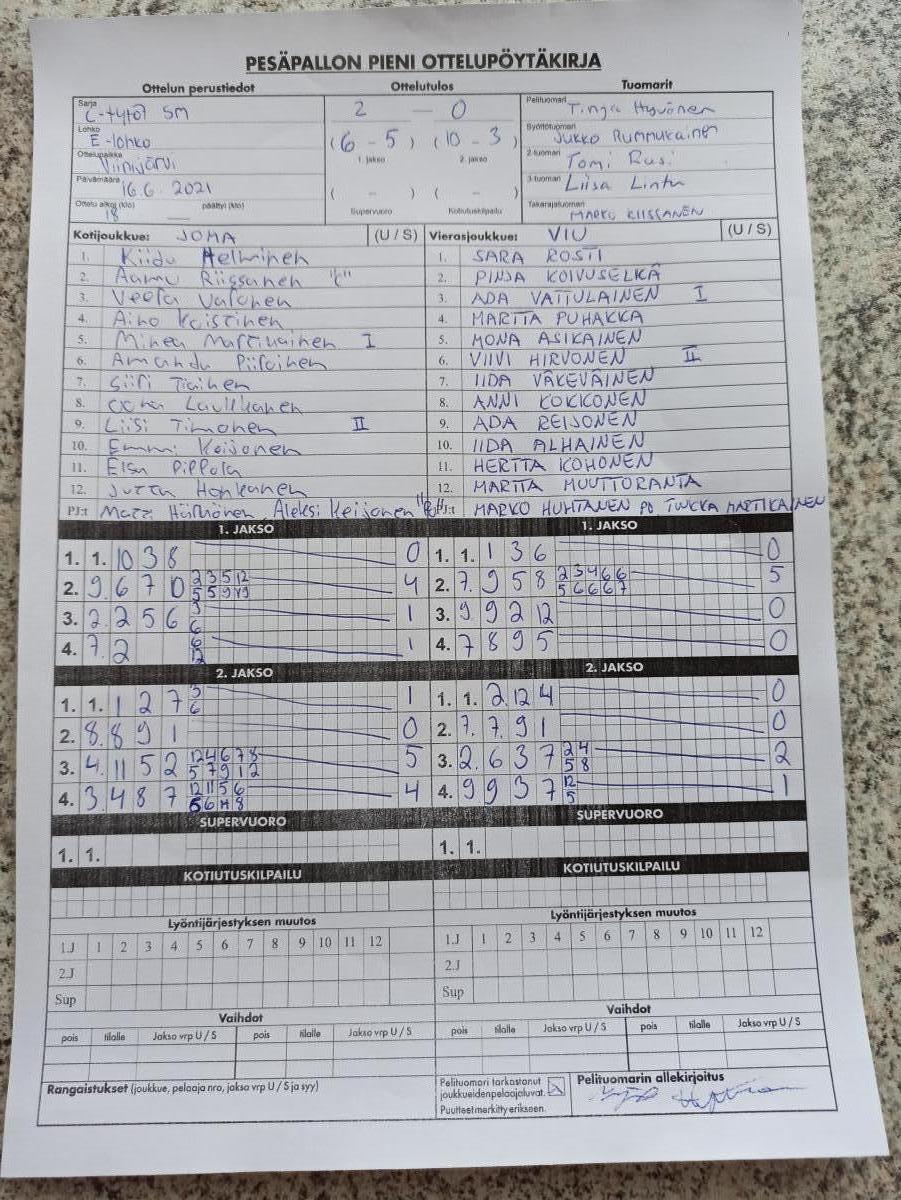 PESÄPALLON PIENI OTTELUPÖYTÄKIRJA
Ottelun perustiedot Ottelutulos Tuomarit
Sarja C-tytöt SM
Lohko E-lohko
Ottelupaikka Viinijärvi
Päivämäärä 16.6. 2021
Ottelu alkoi (klo) 18 päättyi (klo)
2 — 0
(6 - 5) (10 - 3)
1. jakso 2. jakso
( - ) ( - )
Supervuoro Kotiutuskilpailu
Pelituomari Tinja Hyvönen
Syöttötuomari Jukko Rummukainen
2-tuomari Tomi Rusi
3-tuomari Liisa Lintu
Takarajatuomari MARKO KIISSANEN
Kotijoukkue: JOMA (U / S) Vierasjoukkue: VIU (U / S)
1. Helminen 1. SARA ROSTI
2. Aamu Riissanen "C" 2. PINJA KOIVUSELKÄ
3. Veera 3. ADA VATTULAINEN I
4. Aino 4. MARTTA PUHAKKA
5. Minea Martikainen I 5. MONA ASIKAINEN
6. Amanda Piirainen 6. VIIVI HIRVONEN II
7. Siiri Tiainen 7. IIDA VÄKEVÄINEN
8. Oona Laukkanen 8. ANNI KOKKONEN
9. Liisi Timonen II 9. ADA REIJONEN
10. Emmi Keijonen 10. IIDA ALHAINEN
11. Elsa Pippola 11. HERTTA KOHONEN
12. Jutta Honkanen 12. MARTTA MUUTTORANTA
PJ:t Härkönen Aleksi Keijonen PJ:t MARKO HUHTANEN PO TINKKA MATIKAINEN
1. JAKSO 1. JAKSO
1. 1. 10 3 8 0 1. 1. 1 3 6 0
2. 9. 6 7 10 4 2. 7. 9 5 8 5
3. 2. 2 5 6 1 3. 9 9 2 12 0
4. 7. 2 1 4. 7 8 9 5 0
2. JAKSO 2. JAKSO
1. 1. 1 2 7 1 1. 1. 2. 12 4 0
2. 8. 8 9 1 0 2. 7. 7. 9 1 0
3. 4. 11 5 2 5 3. 2. 6 3 7 2 4 5 8 2
4. 3 4 8 7 4 4. 9 9 3 7 12 5 1
SUPERVUORO SUPERVUORO
1. 1. 1. 1.
KOTIUTUSKILPAILU KOTIUTUSKILPAILU
Lyöntijärjestyksen muutos Lyöntijärjestyksen muutos
1.J 1 2 3 4 5 6 7 8 9 10 11 12 1.J 1 2 3 4 5 6 7 8 9 10 11 12
2.J 2.J
Sup Sup
Vaihdot Vaihdot
pois tilalle Jakso vrp U / S pois tilalle Jakso vrp U / S pois tilalle Jakso vrp U / S pois tilalle Jakso vrp U / S
Rangaistukset (joukkue, pelaaja nro, jakso vrp U / S ja syy)
Pelituomari tarkastanut
joukkueiden pelaajaluvat.
Puutteet merkitty erikseen.
Pelituomarin allekirjoitus